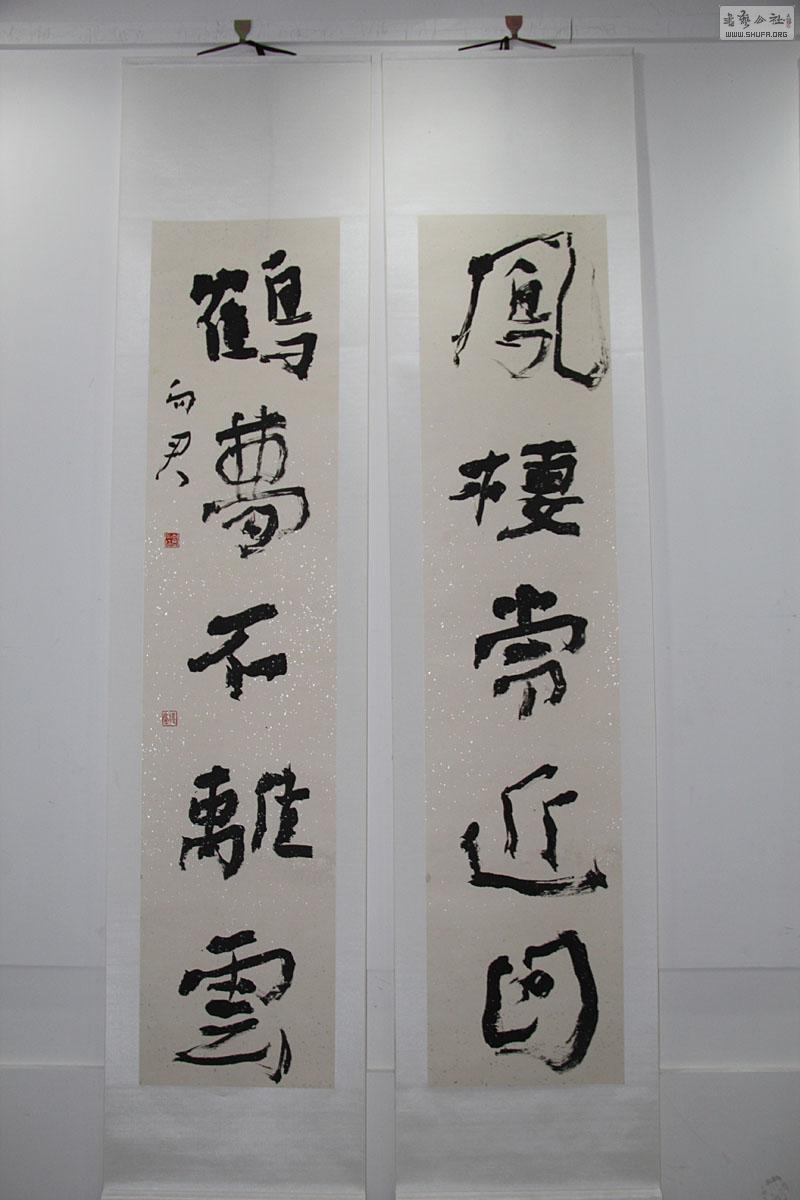 鳳棲常近日
鶴夢不離雲
向君
書藝公社
WWW.SHUFA.ORG